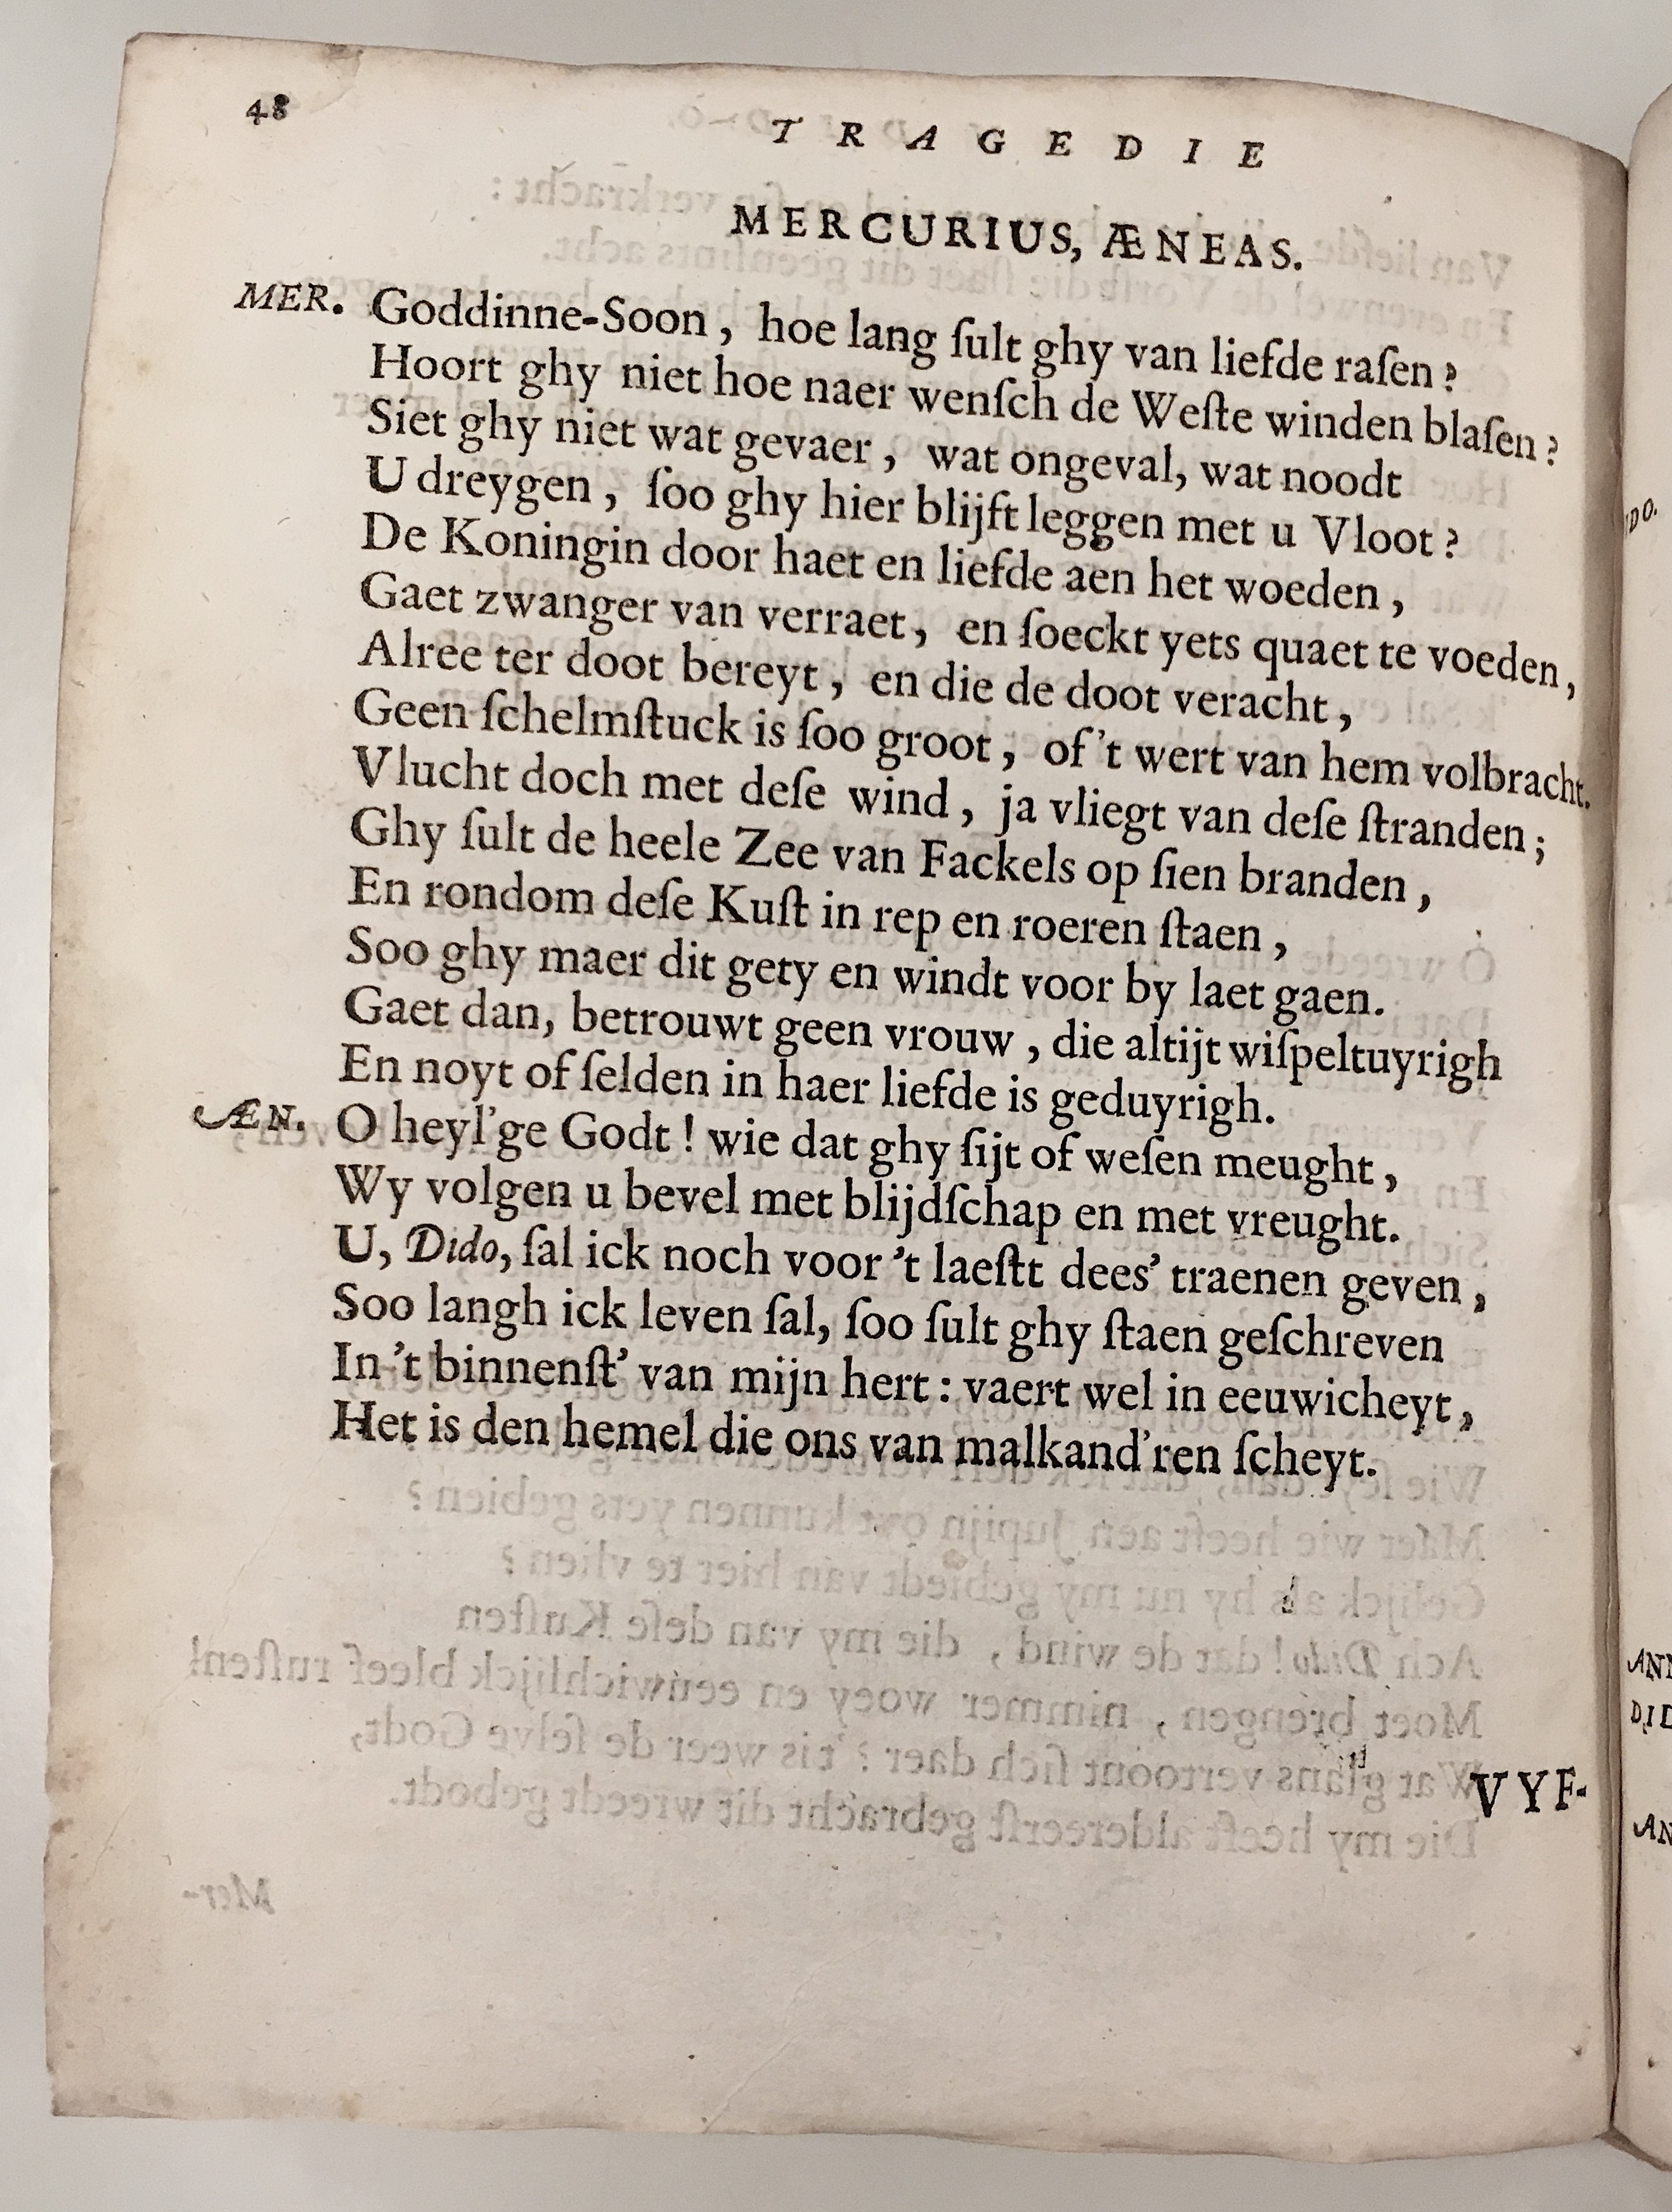 48
TRAGEDIE
MERCURIUS, ÆNEAS.
MER. Goddinne-Soon, hoe lang ſult ghy van liefde raſen?
Hoort ghy niet hoe naer wenſch de Weſte winden blaſen?
Siet ghy niet wat gevaer, wat ongeval, wat noodt
U dreygen, ſoo ghy hier blijft leggen met u Vloot?
De Koningin door haet en liefde aen het woeden,
Gaet zwanger van verraet, en ſoeckt yets quaet te voeden,
Alree ter doot bereyt, en die de doot veracht,
Geen ſchelmſtuck is ſoo groot, of 't wert van hem volbracht.
Vlucht doch met deſe wind, ja vliegt van deſe ſtranden;
Ghy ſult de heele Zee van Fackels op ſien branden,
En rondom deſe Kuſt in rep en roeren ſtaen,
Soo ghy maer dit gety en windt voor by laet gaen.
Gaet dan, betrouwt geen vrouw, die altijt wiſpeltuyrigh
En noyt of ſelden in haer liefde is geduyrigh.
ÆN. O heyl'ge Godt! wie dat ghy ſijt of weſen meught,
Wy volgen u bevel met blijdſchap en met vreught.
U, Dido, ſal ick noch voor 't laeſtt dees' traenen geven,
Soo langh ick leven ſal, ſoo ſult ghy ſtaen geſchreven
In 't binnenſt' van mijn hert: vaert wel in eeuwicheyt,
Het is den hemel die ons van malkand'ren ſcheyt.
VYF-